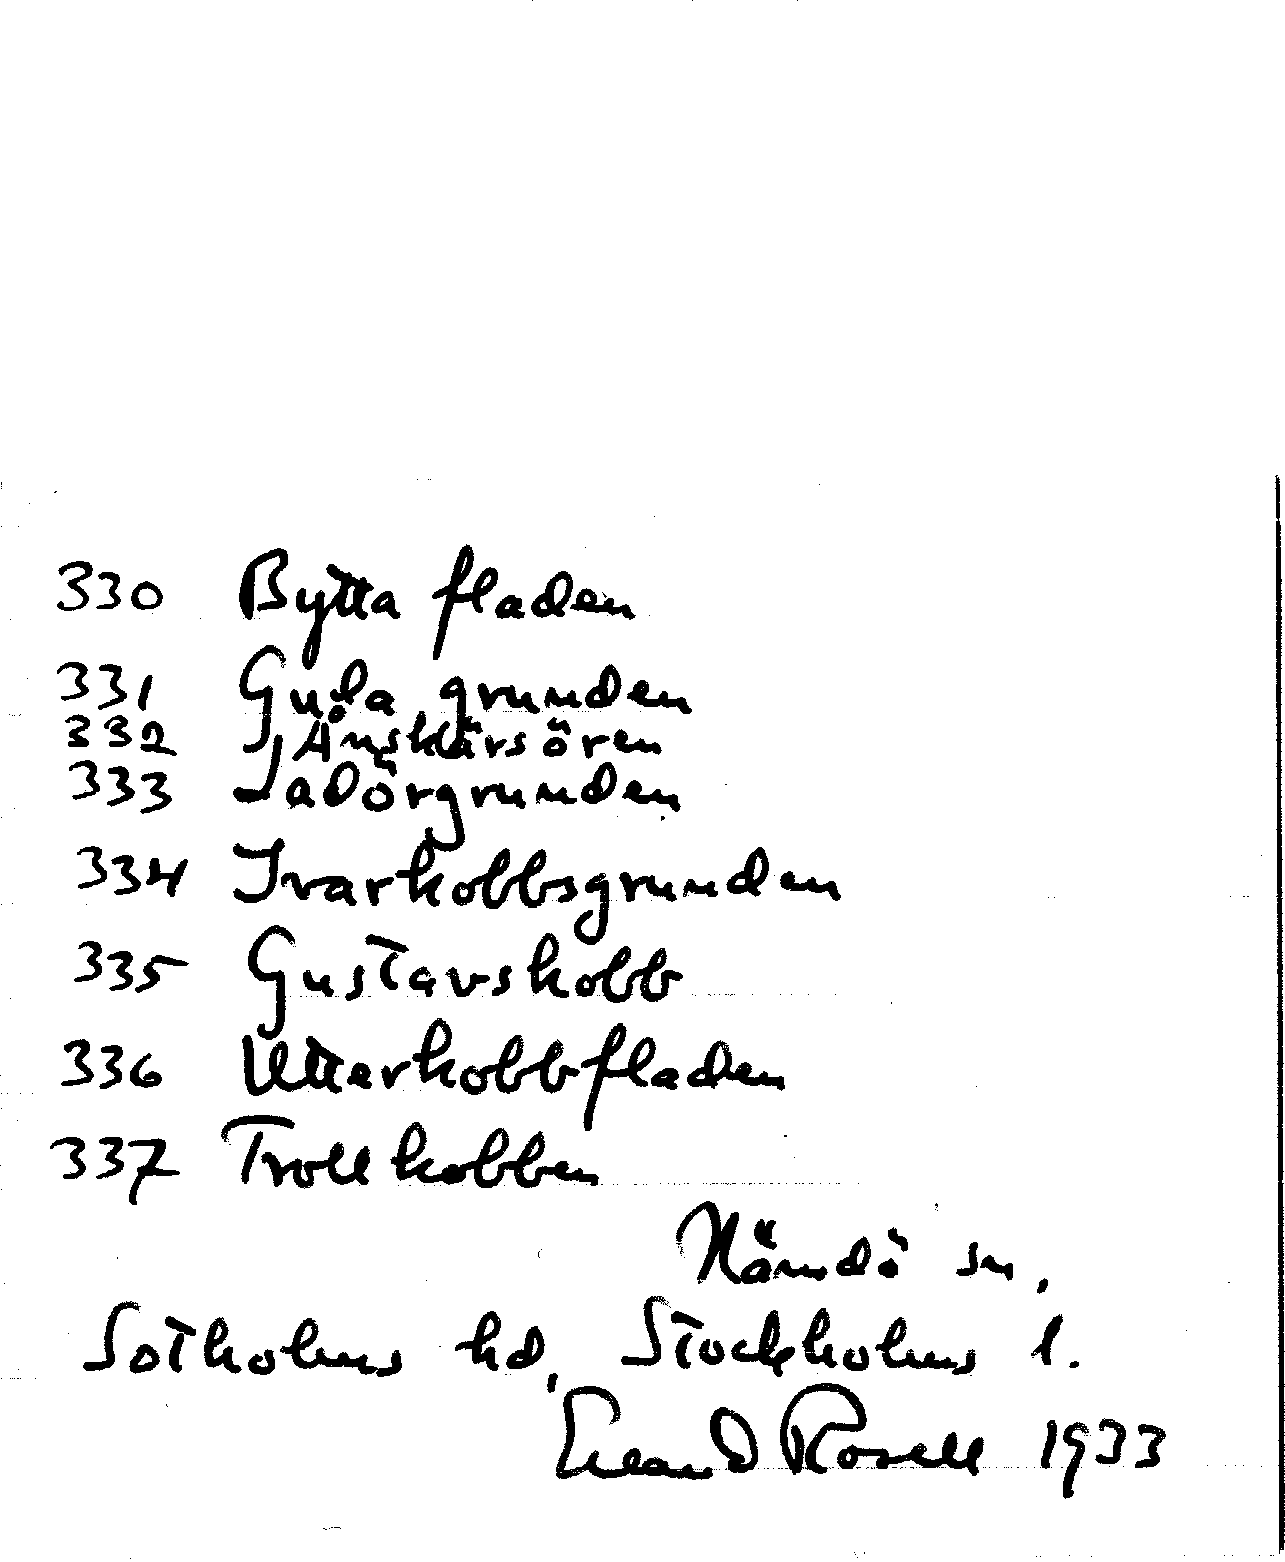 330 Bytta fladen
331 Gula grunden
332 Ängskärsören
333 Ladörgrunden
334 Ivarkobbsgrunden
335 Gustavskobb
336 Utterkobbfladen
337 Trollkobben
Nämdö sn,
Sotholms hd, Stockholms l.
Erland Rosell 1933